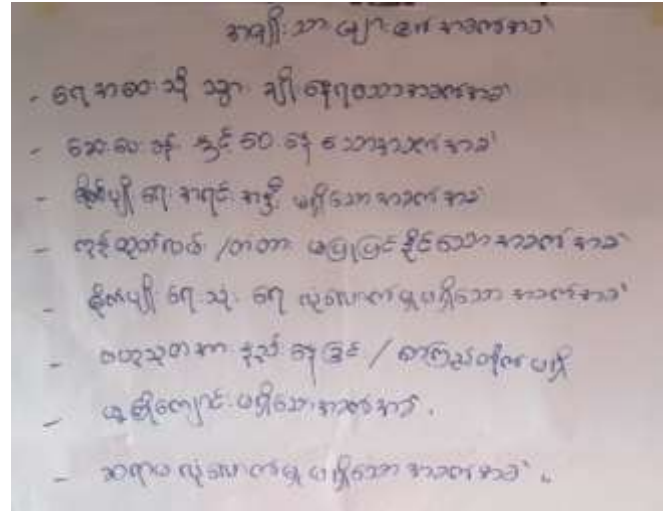 အမျိုးသားများ၏အခက်အခဲ
- ရေအဝေးသို့ သွား ချိုးနေရသောအခက်အခဲ
- ဆေးပေးခန်းနှင့်ဝေးနေသောအခက်အခဲ
- စိုက်ပျိုးရေး အရင်းအနှီး မရှိသောအခက်အခဲ
- ကုန်ထုတ်လမ်း/တံတား မပြုပြင်နိုင်သောအခက်အခဲ
- စိုက်ပျိုးရေးသုံးရေ လုံလောက်မှုမရှိသောအခက်အခဲ
- ဗဟုသုတအားနည်းနေခြင်း/စာကြည့်တိုက်မရှိ
- မူကြိုကျောင်းမရှိသောအခက်အခဲ.
- ဆရာမ လုံလောက်မှု မရှိသောအခက်အခဲ.